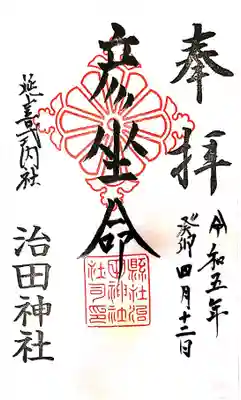 奉拝
令和五年
癸卯 四月十二日
彦坐命
縣社治
田神社
社司印
延喜式内社
治田神社